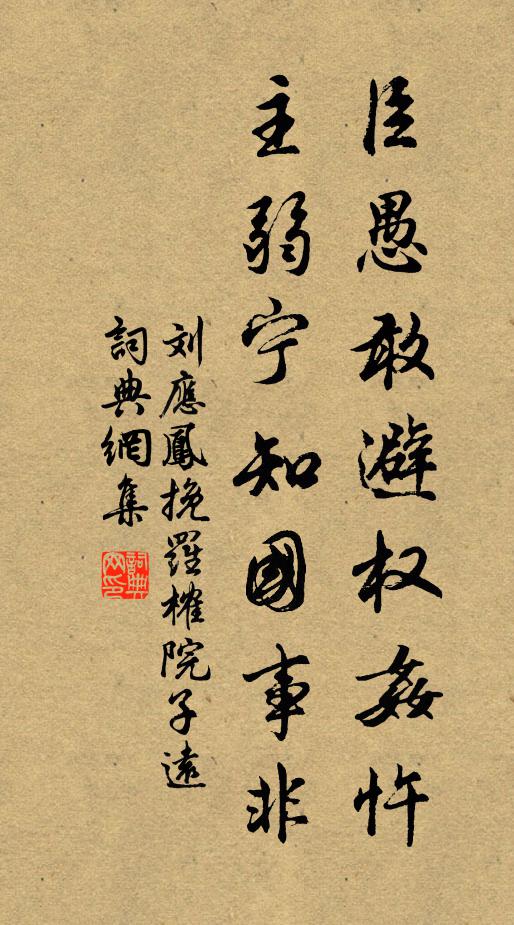 臣愚敢避权姦忤
主弱宁知國事非
刘應鳳挽羅榷院子遠
詞典網集
詞典網印